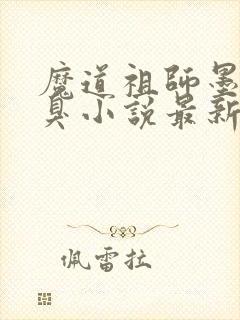 魔道祖師墨
臭小說最新
佩雷拉